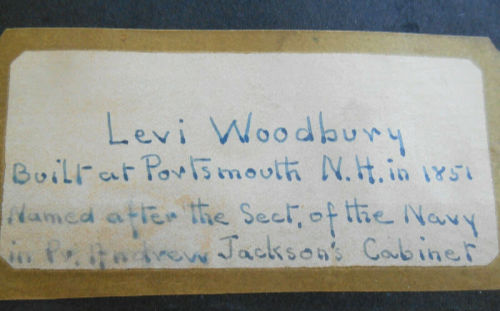 Levi Woodbury
Built at Portsmouth N.H. in 1851
Named after the Sect. of the Navy
in Pr. Andrew Jackson's Cabinet